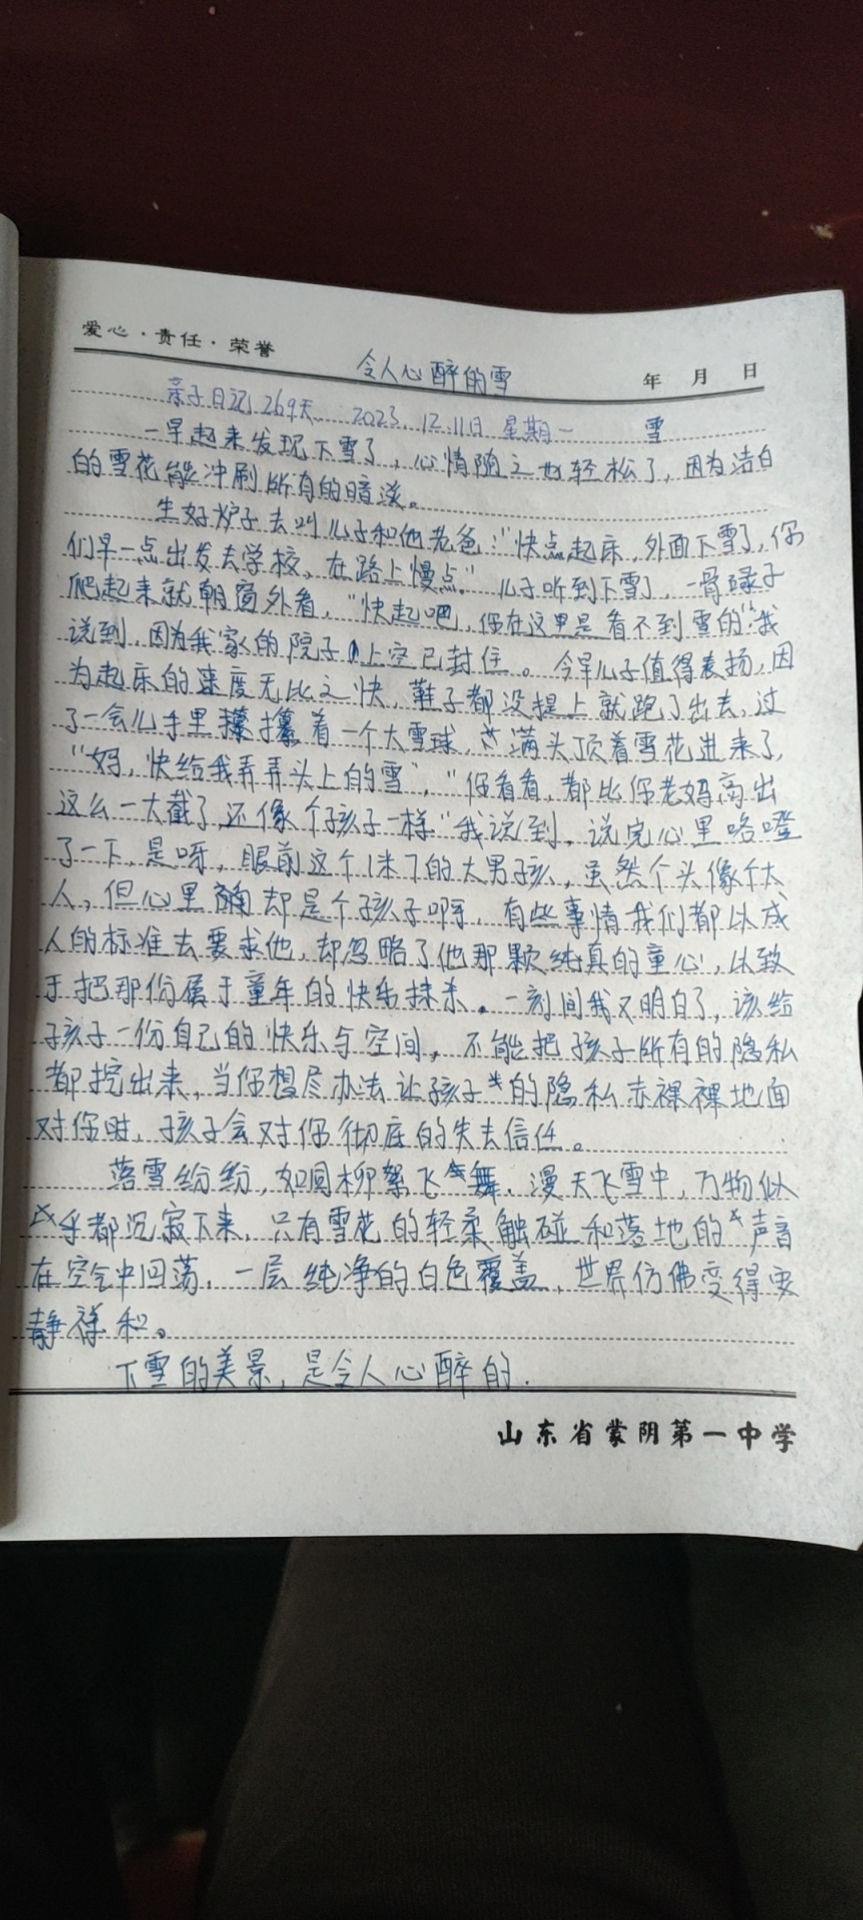 爱心·责任·荣誉
令人心醉的雪
年 月 日
亲子日记269天 2023.12.11日 星期一 雪
一早起来发现下雪了,心情随之也轻松了,因为洁白
的雪花能冲刷所有的暗淡。
生好炉子去叫儿子和他老爸:"快点起床,外面下雪了,你
们早一点出发去学校,在路上慢点。"儿子听到下雪了,一骨碌子
爬起来就朝窗外看,"快起吧,你在这里是看不到雪的"我
说到,因为我家的院子上空已封住。今早儿子值得表扬,因
为起床的速度无比之快,鞋子都没提上就跑了出去,过
了一会儿手里攥着一个大雪球,满头顶着雪花进来了,
"妈,快给我弄弄头上的雪","你看看,都比你老妈高出
这么一大截了,还像个孩子一样"我说到,说完心里咯噔
了一下,是呀,眼前这个1米7的大男孩,虽然个头像个大
人,但心里确却是个孩子啊,有些事情我们都以成
人的标准去要求他,却忽略了他那颗纯真的童心,以致
于把那份属于童年的快乐抹杀。一刻间我又明白了,该给
孩子一份自己的快乐与空间,不能把孩子所有的隐私
都挖出来,当你想尽办法让孩子的隐私赤裸裸地面
对你时,孩子会对你彻底的失去信任。
落雪纷纷,如同柳絮飞舞,漫天飞雪中,万物似
乎都沉寂下来,只有雪花的轻柔触碰和落地的声音
在空气中回荡,一层纯净的白色覆盖,世界仿佛变得安
静祥和。
下雪的美景,是令人心醉的.
山东省蒙阴第一中学